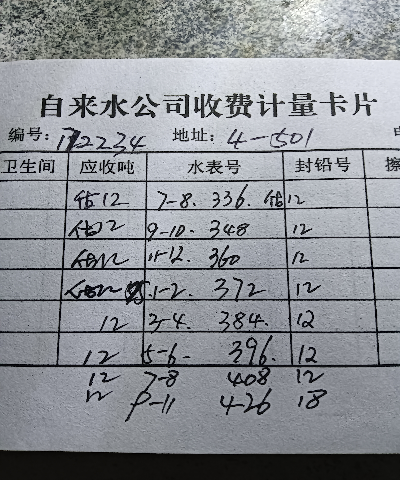 自来水公司收费计量卡片
编号: 112234 地址: 4-501
卫生间 应收吨 水表号 封铅号
估12 7-8. 336. 估12
估12 9-10. 348 12
估12 11-12. 360 12
估12 1-2. 372 12
12 3-4. 384. 12
12 5-6. 396. 12
12 7-8 408 12
12 9-11 426 18